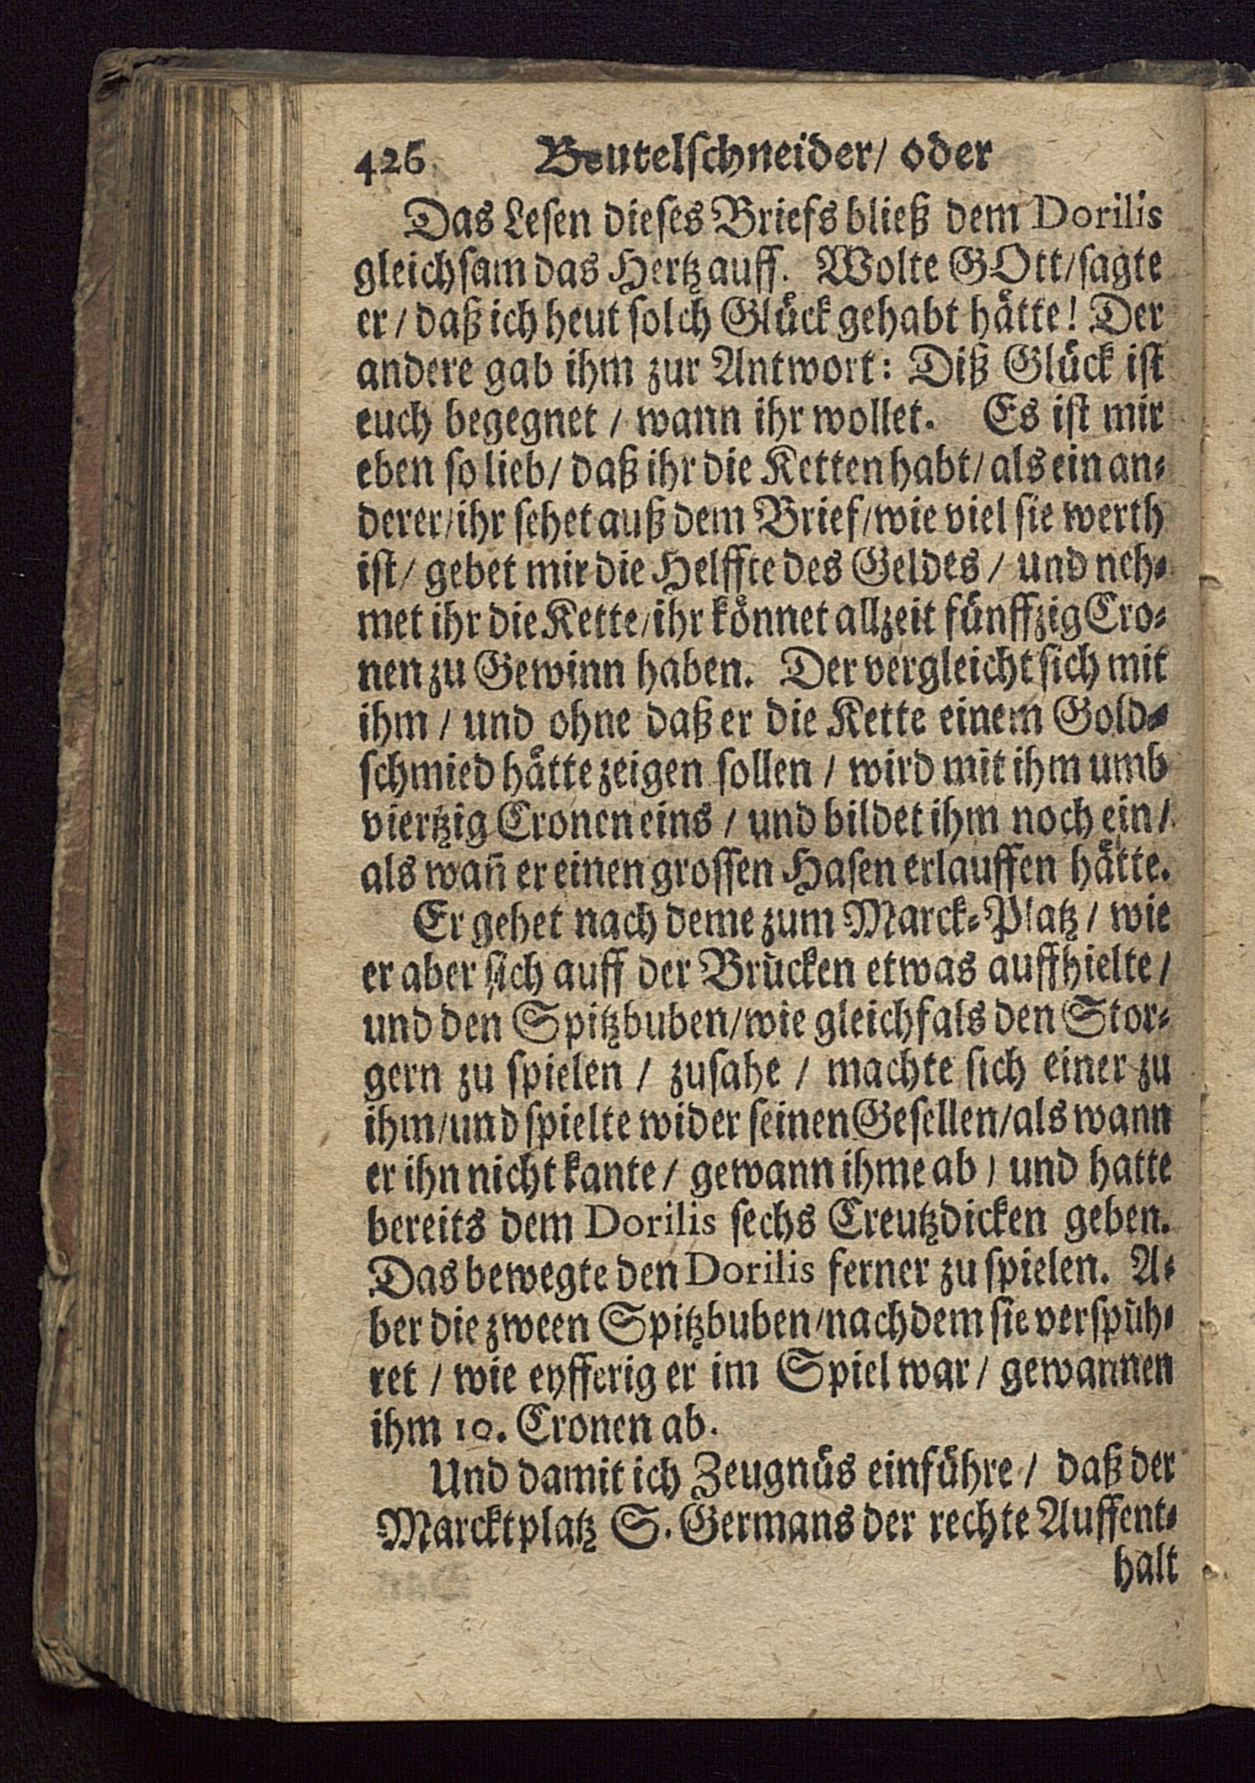 426 Beutelschneider/ oder
Das Lesen dieses Briefs bließ dem Dorilis
gleichsam das Hertz auff. Wolte GOtt/sagte
er / daß ich heut solch Glück gehabt hätte! Der
andere gab ihm zur Antwort: Diß Glück ist
euch begegnet / wann ihr wollet. Es ist mir
eben so lieb/ daß ihr die Ketten habt/ als ein an-
derer/ihr sehet auß dem Brief/wie viel sie werth
ist/ gebet mir die Helffte des Geldes / und neh-
met ihr die Kette/ihr könnet allzeit fünffzig Cro-
nen zu Gewinn haben. Der vergleicht sich mit
ihm / und ohne daß er die Kette einem Gold-
schmied hätte zeigen sollen / wird mit ihm umb
viertzig Cronen eins / und bildet ihm noch ein/
als wañ er einen grossen Hasen erlauffen hätte.
Er gehet nach deme zum Marck-Platz / wie
er aber sich auff der Brücken etwas auffhielte/
und den Spitzbuben/wie gleichfals den Stor-
gern zu spielen / zusahe / machte sich einer zu
ihm/und spielte wider seinen Gesellen/als wann
er ihn nicht kante/ gewann ihme ab / und hatte
bereits dem Dorilis sechs Creutzdicken geben.
Das bewegte den Dorilis ferner zu spielen. A-
ber die zween Spitzbuben/nachdem sie verspüh-
ret / wie eyfferig er im Spiel war/ gewannen
ihm 10. Cronen ab.
Und damit ich Zeugnüs einführe / daß der
Marcktplatz S. Germans der rechte Auffent-
halt